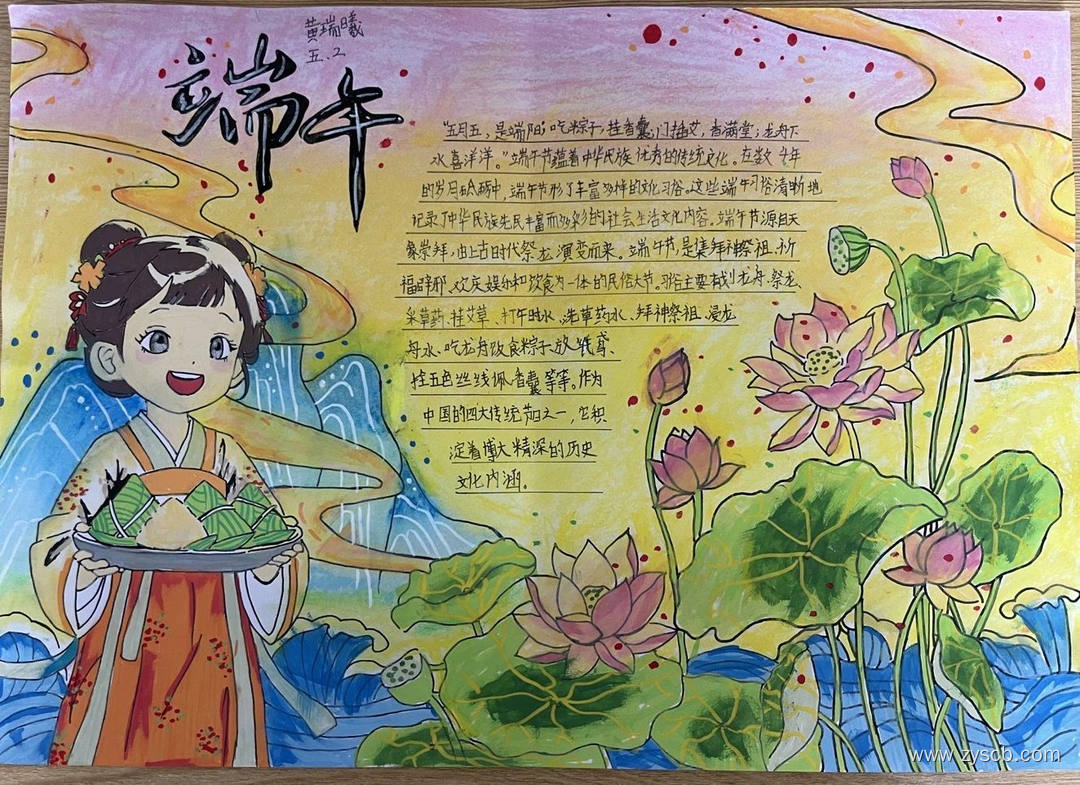 黄瑞曦
五.2
端午
“五月五,是端阳;吃粽子,挂香囊;门插艾,香满堂;龙舟下
水喜洋洋。”端午节蕴着中华民族优秀的传统文化。在数千年
的岁月中,端午节形了丰富多样的文化习俗。这些端午习俗清晰地
记录了中华民族先民丰富而多彩的社会生活文化内容。端午节源自天
象崇拜,由上古时代祭龙演变而来。端午节是集拜神祭祖、祈
福辟邪、欢庆娱乐和饮食为一体的民俗大节。习俗主要有划龙舟、祭龙、
采草药、挂艾草、打午时水、洗草药水、拜神祭祖、浸龙
舟水、吃龙舟饭、食粽子、放纸鸢、
拴五色丝线、佩香囊等等。作为
中国的四大传统节日之一,它积
淀着博大精深的历史
文化内涵。
www.zyscb.com